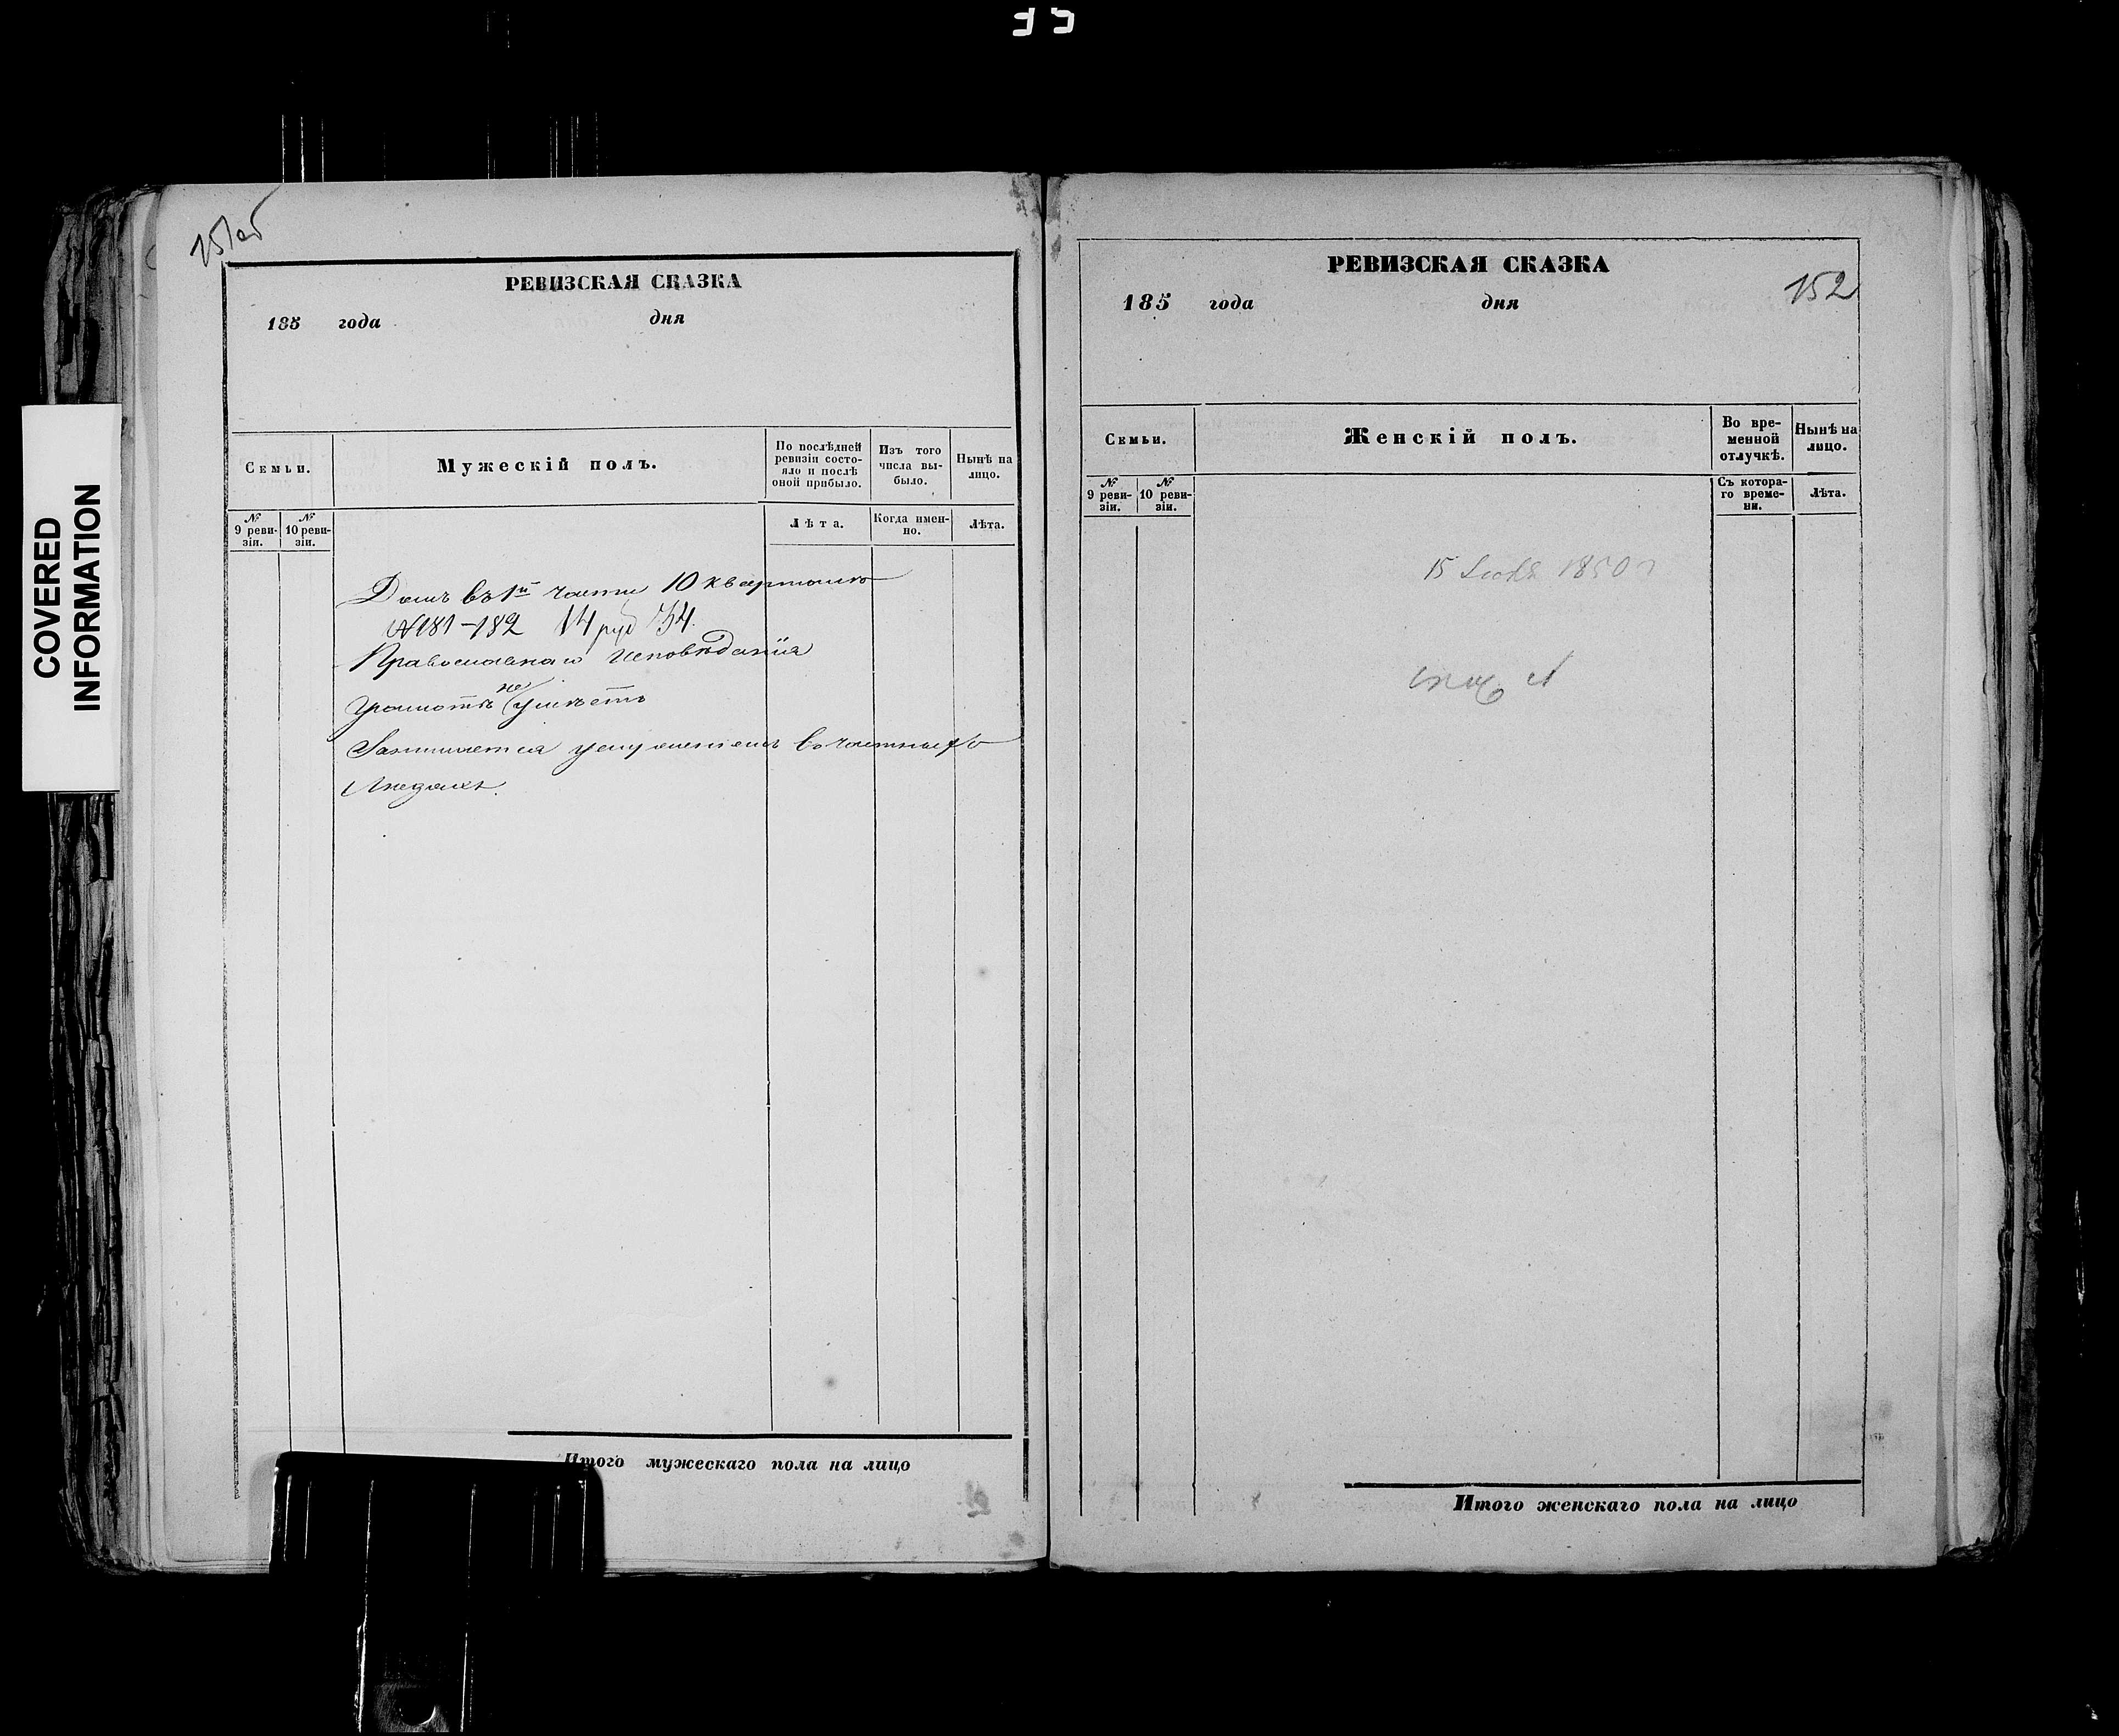 COVERED
INFORMATION
151об
РЕВИЗСКАЯ СКАЗКА
185 года дня
Семьи.
Мужескій полъ.
По послѣдней ревизіи состояло и послѣ оной прибыло.
Изъ того числа выбыло.
Нынѣ на лицо.
№ 9 ревизіи.
№ 10 ревизіи.
Лѣта.
Когда именно.
Лѣта.
Домъ въ 1й части 10 квартала
№ 181-182 14 руб 34.
Православнаго Исповѣданія
Грамотѣ не умѣетъ
Занимается услуженіемъ въ частныхъ
Людяхъ.
Итого мужескаго пола на лицо
152
РЕВИЗСКАЯ СКАЗКА
185 года дня
Семьи.
Женскій полъ.
Во временной отлучкѣ.
Нынѣ на лицо.
№ 9 ревизіи.
№ 10 ревизіи.
Съ котораго времени.
Лѣта.
15 1850 г
Итого женскаго пола на лицо